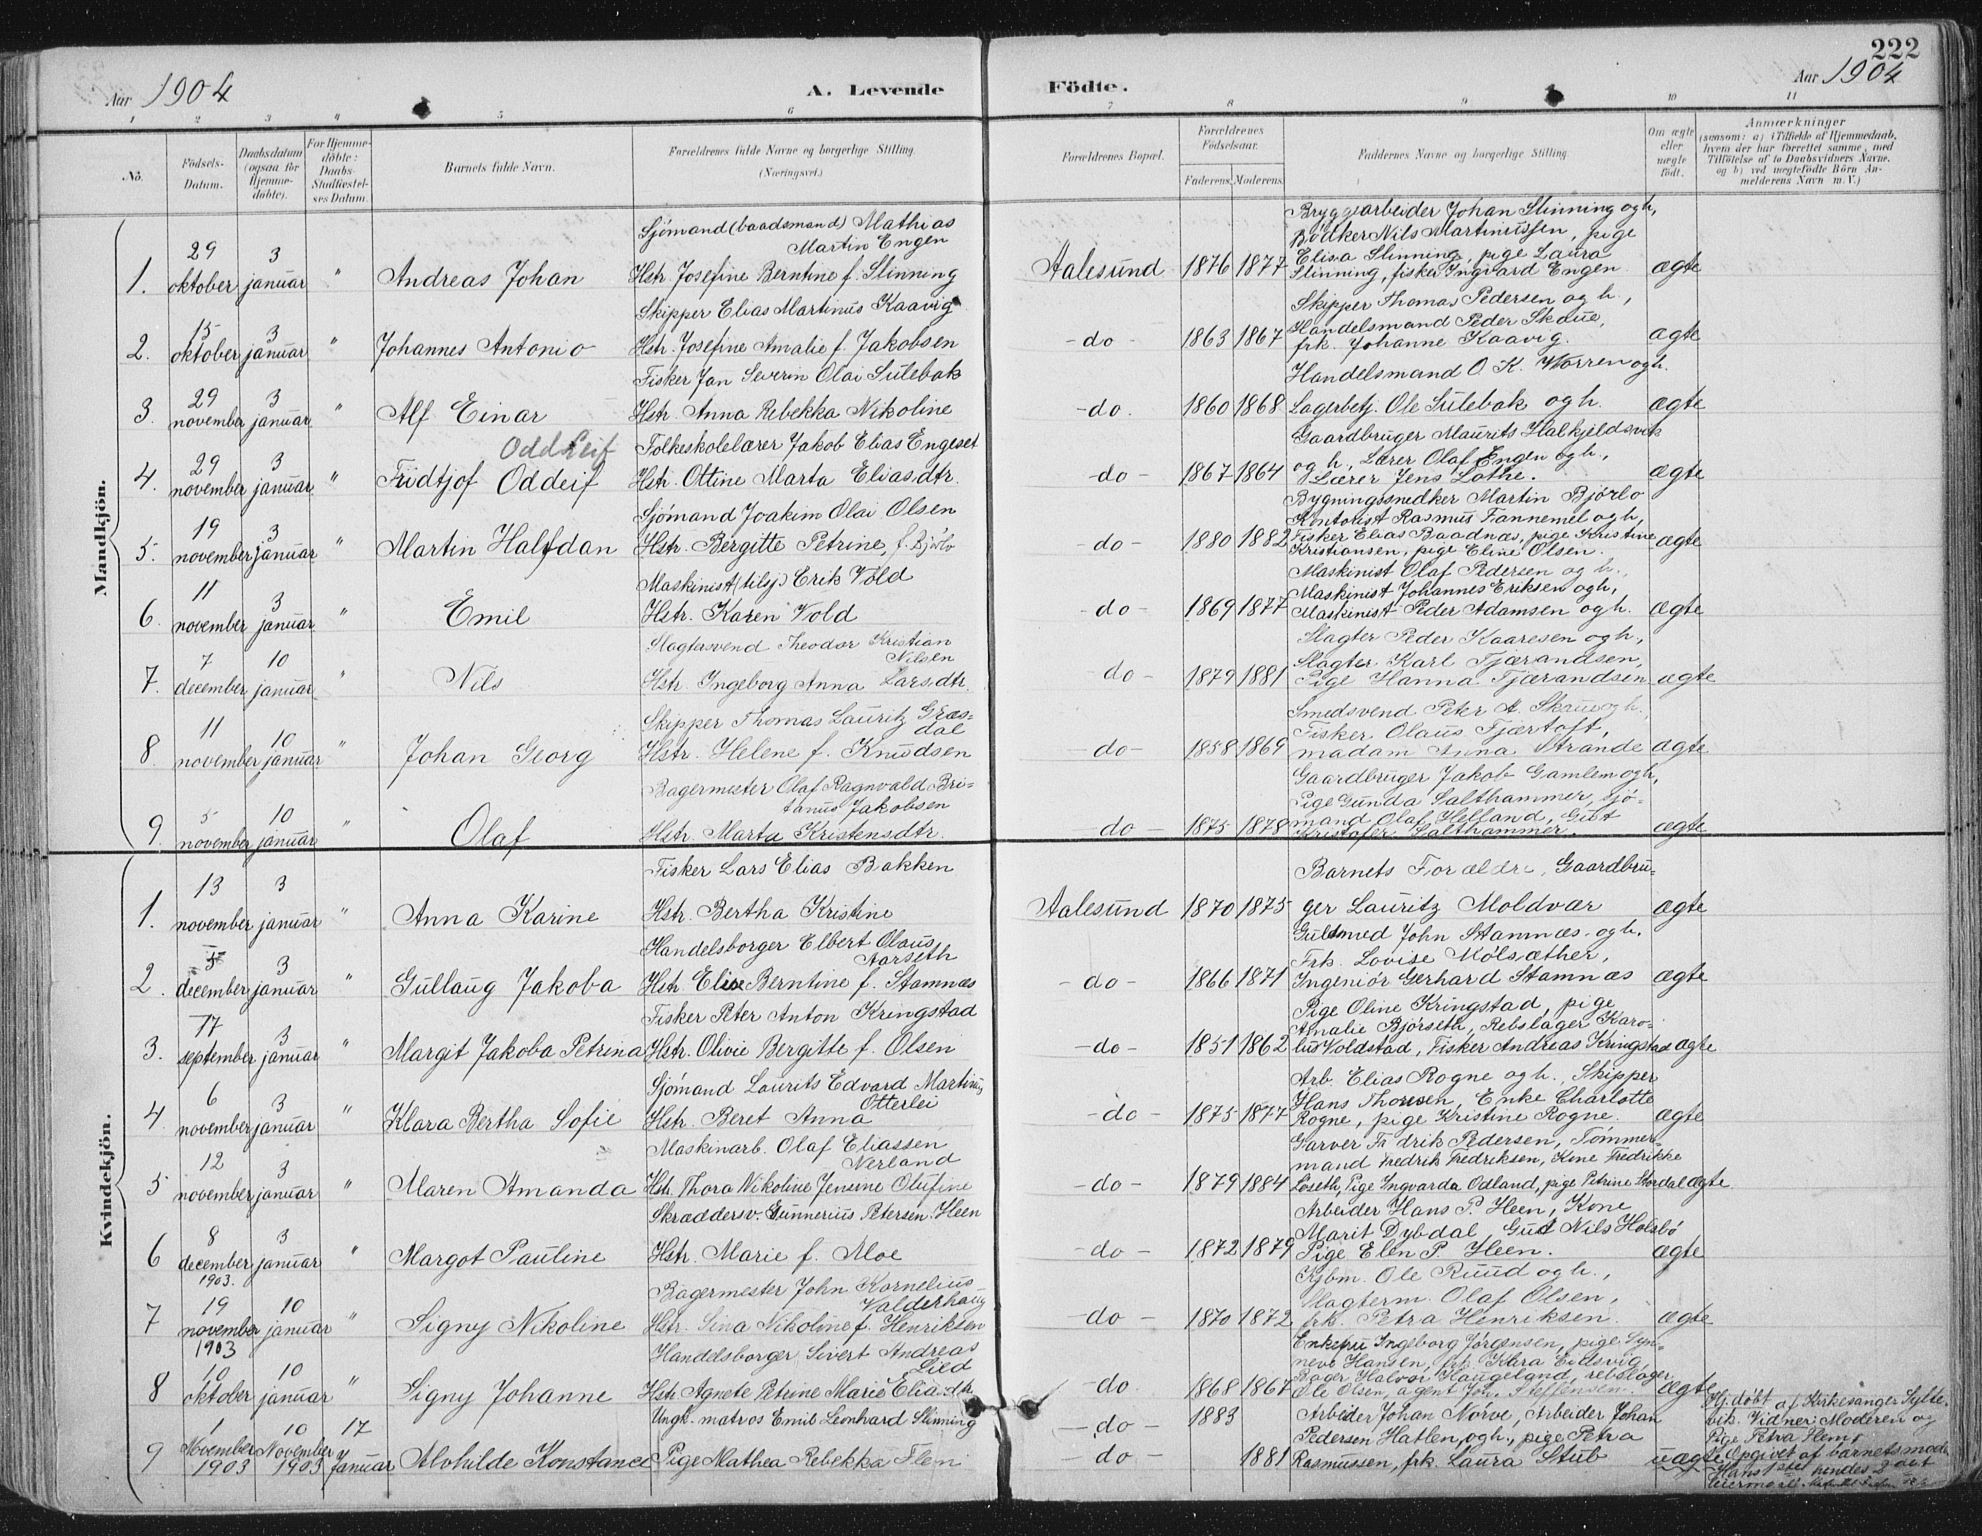 222
Aar 1904
A. Levende
Födte.
Aar 1904
1 2 3 4 5 6 7 8 9 10 11
No.
Födsels-Datum.
Daabsdatum (ogsaa for Hjemme-døbte).
For Hjemme-døbte: Daabs-Stadfæstel-ses Datum.
Barnets fulde Navn.
Forældrenes fulde Navne og borgerlige Stilling. (Næringsvei.)
Forældrenes Bopæl.
Forældrenes Födselsaar.
Faderens. Moderens.
Faddernes Navne og borgerlige Stilling.
Om ægte eller uægte födt.
Anmærkninger
(saasom: a) i Tilfælde af Hjemmedaab, hvem der har forrettet samme, med Tilföielse af to Daabsvidners Navne, og b) ved uægtefödte Börn Anmelderens Navn m. V.)
Mandkjön.
Sjömand (baadsmand) Mathias
Martin Engen
Bryggearbeider Johan Slinning og h,
Bödker Nils Martinussen, pige
Elisa Slinning, pige Laura
1. 29 oktober 3 januar " Andreas Johan Hstr. Josefine Berntine f. Slinning Aalesund 1876 1877 Slinning, fisker Ingvard Engen ægte
Skipper Elias Martinus Kaavig
Skipper Thomas Pedersen og h,
Handelsmand Peder Skaue,
2. 15 oktober 3 januar " Johannes Antonio Hstr. Josefine Amalie f. Jakobsen -do- 1863 1867 frk. Johanne Kaavig. ægte
Fisker Jan Severin Olai Sulebak
Handelsmand O. K. Worren og h.
3. 29 november 3 januar " Alf Einar Hstr. Anna Rebekka Nikoline -do. 1860 1868 Lagerbetj. Ole Sulebak og h. ægte
Odd Leif
Folkeskolelærer Jakob Elias Engeset
Gaardbruger Maurits Halkjeldsvik
og h, Lærer Olaf Engen og h,
4. 29 november 3 januar " Fridtjof Oddeif Hstr. Ottine Marta Eliasdtr. -do- 1867 1864 Lærer Jens Lothe. ægte
Sjömand Joakim Olai Olsen
Bygningssnedker Martin Bjørlo
Kontorist Rasmus Fannemel og h,
Fisker Elias Baadnæs, pige Kristine
5. 19 november 3 januar " Martin Halfdan Hstr. Bergitte Petrine, f. Bjørlo -do- 1880 1882 Kristiansen, pige Eline Olsen. ægte
Maskinist (tilsj) Erik Vold
Maskinist Olaf Pedersen og h.,
Maskinist Johannes Eriksen og h,
6. 11 november 3 januar " Emil Hstr. Karen Vold -do- 1869 1877 Maskinist Peder Adamsen og h. ægte
Slagtersvend Theodor Kristian
Nilsen
Slagter Peder Kaaresen og h,
Slagter Karl Tjærandsen,
7. 7 december 10 januar " Nils Hstr. Ingeborg Anna Larsdtr. do- 1879 1881 Pige Hanna Tjærandsen ægte
Skipper Thomas Lauritz Græs-
dal
Smedsvend Peter A. Skrue og h.
Fisker Olaus Fjærtoft,
8. 11 november 10 januar " Johan Georg Hstr. Helene f. Knudsen -do- 1858 1869 madam Anna Strande ægte
Bagermester Olaf Ragnvald Bri-
tanus Jakobsen
Gaardbruger Jakob Gamlem og h,
Pige Gunda Salthammer, sjö-
mand Olaf Helland, Gut
9. 5 november 10 januar " Olaf Hstr. Marta Kristensdtr. -do- 1875 1878 Kristofer Salthammer. ægte
Kvindekjön.
Fisker Lars Elias Bakken
Barnets Forældre, Gaardbru-
1. 13 november 3 januar " Anna Karine Hstr. Bertha Kristine Aalesund 1870 1875 ger Lauritz Moldvær ægte
Handelsborger Elbert Olaus
Aarseth
Guldsmed John Stamnæs og h.
Frk. Lovise Kølsæther,
2. 5 december 3 januar " Gullaug Jakoba Hstr Elise Berntine f. Stamnæs -do- 1866 1871 Ingeniör Gerhard Stamnæs ægte
Fisker Peter Anton Kringstad
Pige Oline Kringstad, pige
Amalie Bjørseth, Rebslager Karo-
3. 17 september 3 januar " Margit Jakoba Petrina Hstr. Olivie Bergitte f. Olsen -do- 1851 1862 lus Voldstad, Fisker Andreas Kringstad ægte
Sjömand Laurits Edvard Martinus
Otterlei
Arb. Elias Rogne og h., Skipper
Hans Thoresen, Enke Charlotte
4. 6 november 3 januar " Klara Bertha Sofie Hstr. Beret Anna -do- 1875 1877 Rogne, pige Kristine Rogne. ægte
Maskinarb. Olaf Eliassen
Nerland
Garver Fredrik Pedersen, Tömmer-
mand Fredrik Fredriksen, Kone Fredrikke
5 12 november 3 januar " Maren Amanda Hstr. Thora Nikoline Jensine Olufine -do- 1879 1884 Løseth, Pige Ingvarda Odland, pige Petrine Stordal ægte
Skræddersv. Gunnerius Petersen Heen
Arbeider Hans P. Heen, Kone
Marit Dybdal Gut Nils Holsbø
6 8 december 1903. 3 januar " Margot Pauline Hstr. Marie f. Moe -do- 1872 1879 Pige Elen P. Heen. ægte
Bagermester John Kornelius
Valderhaug
Kjbm. Ole Ruud og h.,
Slagterm. Olaf Olsen,
7 19 november 1903 10 januar " Signy Nikoline Hstr. Sina Nikoline f. Henriksen -do- 1870 1872 frk. Petra Henriksen. ægte
Handelsborger Sivert Andreas
Lied
Enkefru Ingeborg Jørgensen, pige Syn-
neve Hansen, frk Klara Eidsvig,
Bager Halvor Haugeland, rebslager
8 10 oktober 10 januar " Signy Johanne Hstr Agnete Petrine Marie Eliasdtr -do. 1868 1867 Ole Olsen, agent Joh. Steffensen. ægte
Ungk. matros Emil Leonhard Slinning -do- 1883 Arbeider Johan Nörve, Arbeider Johan
Pedersen Hatlen og h., pige Petra
9 1 November 1903 10 November 1903 17 Januar Alvhilde Konstance Pige Mathea Rebekka Flem do- 1881 Rasmussen, frk Laura Stub uægte
Hj. døbt af Kirkesanger Sylte-
vik. Vidner: Moderen og
Pige Petra Flem.
Opgivet af barnets moder
Hans 1ste hendes 2det
leiermaal.